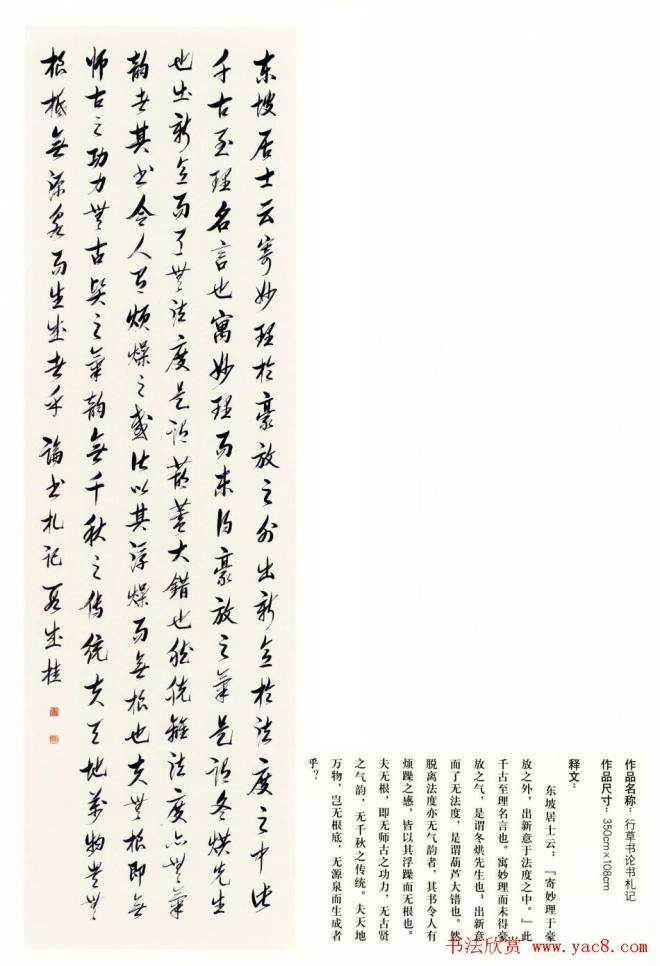 东坡居士云寄妙理於豪放之外出新意於法度之中此
千古至理名言也寓妙理而未得豪放之氣是谓冬烘先生
也出新意而了無法度是谓葫蘆大错也然脱離法度亦無氣
韵者其书令人有烦燥之感皆以其浮燥而無根也夫無根即無
师古之功力無古贤之氣韵無千秋之传统夫天地萬物岂無
根柢無源泉而生成者乎 論书札记 成桂
作品名称：行草书论书札记
作品尺寸：350cm×108cm
释文：
东坡居士云：『寄妙理于豪
放之外，出新意于法度之中。』此
千古至理名言也。寓妙理而未得豪
放之气，是谓冬烘先生也；出新意
而了无法度，是谓葫芦大错也。然
脱离法度亦无气韵者，其书令人有
烦躁之感，皆以其浮躁而无根也。
夫无根，即无师古之功力，无古贤
之气韵，无千秋之传统。夫天地
万物，岂无根底，无源泉而生成者
乎？
书法欣赏 www.yac8.com